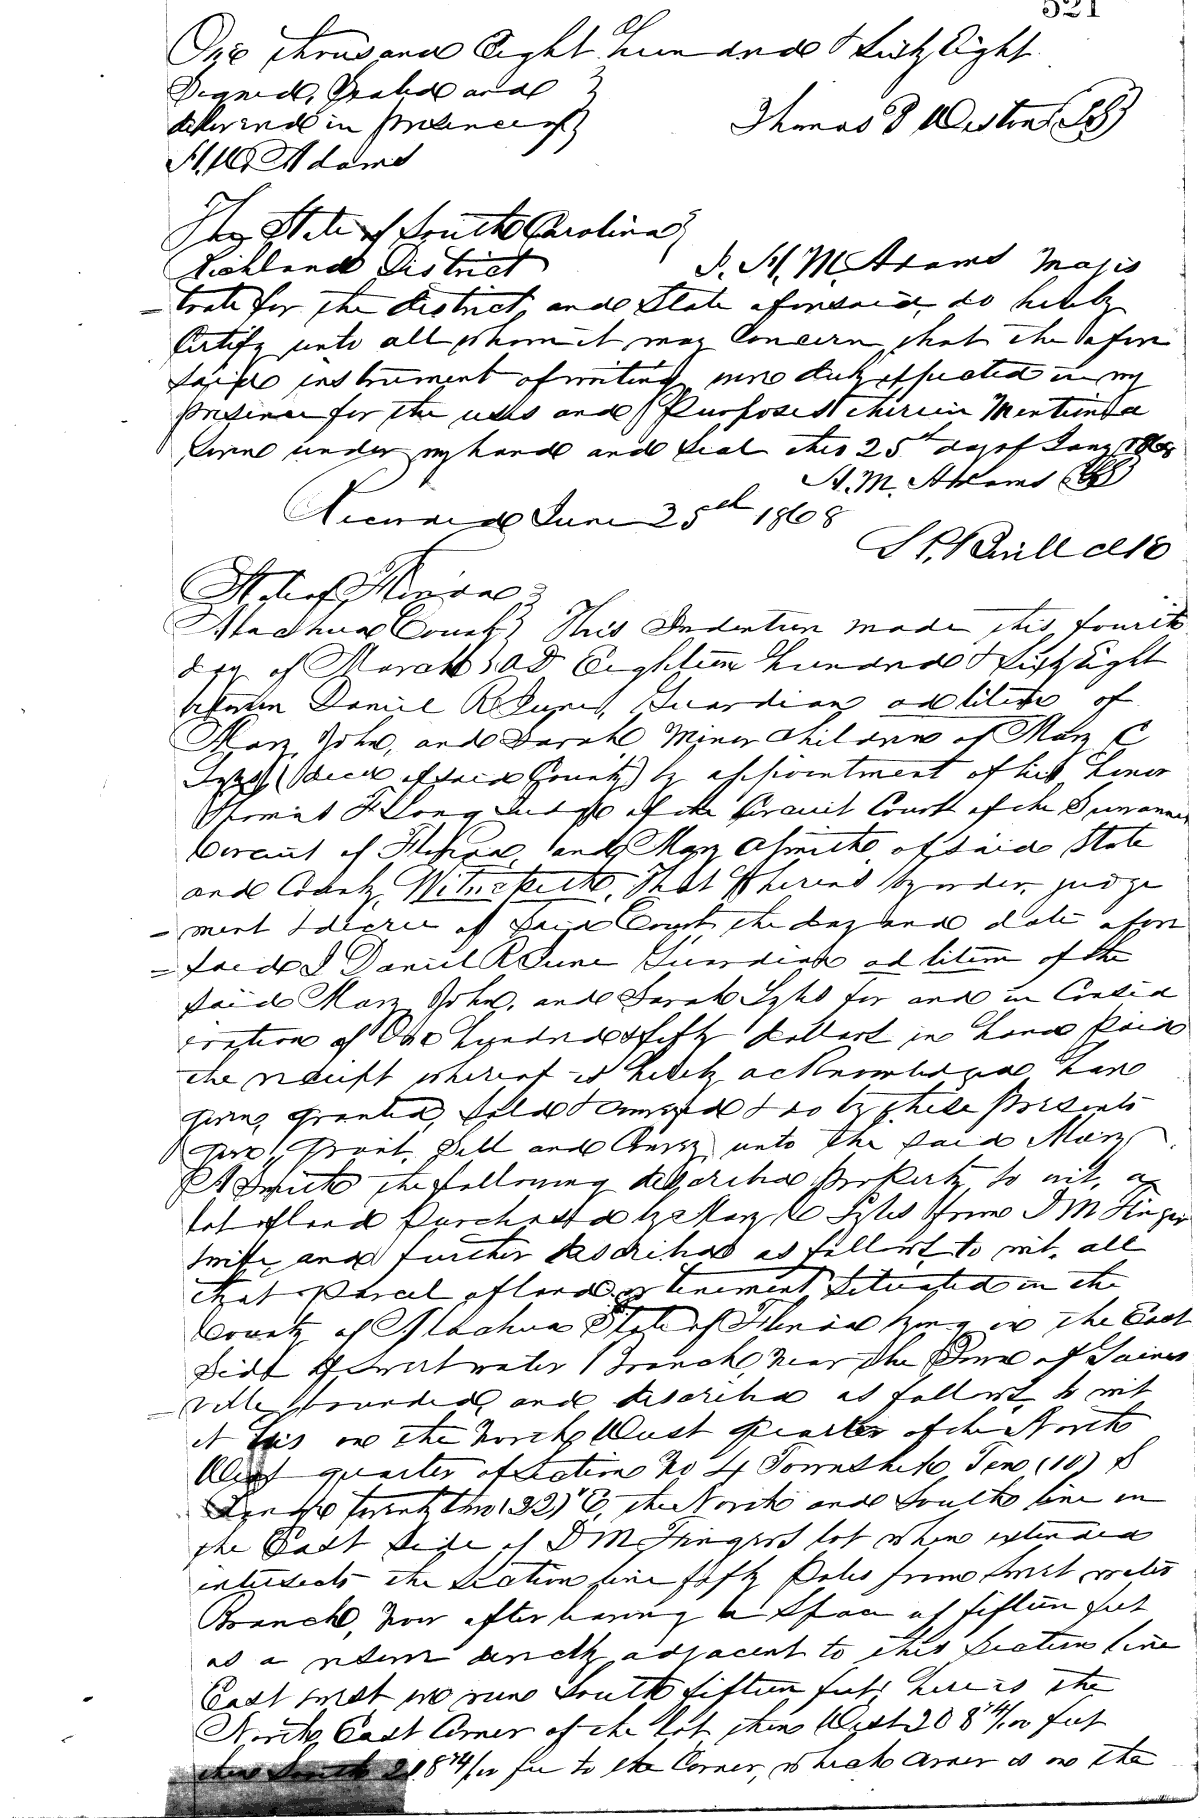 521
One thousand Eight hundred & Sixty Eight
Signed, Sealed and }
delivered in presence of } Thomas P Weston (LS)
H. W. Adams
The State of South Carolina }
Richland District I, H. M. Adams Magis
= trate for the district and State aforesaid, do hereby
Certify unto all whom it may Concern that the afore
said instrument of writing were duly effected in my
presence for the uses and Purposes therein Mentioned
Given under my hand and Seal this 25th day of Jany 1868
H. M. Adams (LS)
Recorded June 25th 1868
State of Florida }
Alachua County } This Indenture made this fourth
day of March AD Eighteen hundred & Sixty Eight
between Daniel R June, Guardian ad litem of
Mary, John, and Sarah Minor Children of Mary C
Lyles (decd of said County) by appointment of his honor
Thomas F Long Judge of the Circuit Court of the Suwannee
Circuit of Florida, and Mary A Smith of said State
and County, Witnesseth, That Whereas by order, judge
= ment & decree of Said Court the day and date afore
= said I Daniel R June Guardian ad litem of the
said Mary, John, and Sarah Lyles for and in Consid
eration of One hundred & fifty dollars in hand Paid
the receipt whereof is hereby acknowledged have
given, granted, sold & conveyed & do by these Presents
give, grant, Sell and Convey unto the said Mary
A Smith the following described property to wit, a
lot of land Purchased by Mary C Lyles from D M Finger
wife, and further described as follows to wit, all
that Parcel of land or tenement Situated in the
County of Alachua State of Florida lying in the East
Side of Sweet water Branch, Near the Town of Gaines
= ville bounded, and described as follows to wit
it lies on the North West quarter of the North
West quarter of section No 4 Township Ten (10) S
Range twenty two (22) E, the North and South line in
the East Side of D M Fingers lot when extended
intersects the section line fifty Poles from Sweet water
Branch, Now after leaving a Space of fifteen feet
as a reserve directly adjacent to this Section line
East West we run South fifteen feet, here is the
North East Corner of the lot, then West 208 74/100 feet
then South 208 74/100 fee to the Corner, which Corner is on the